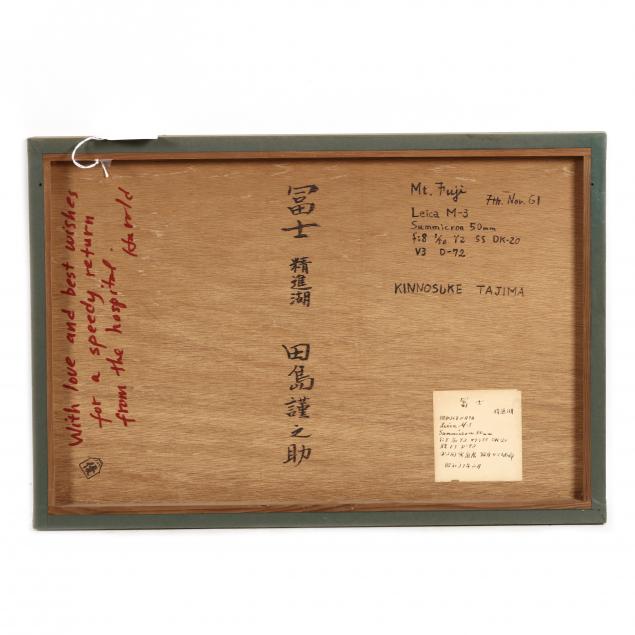 With love and best wishes
for a speedy return
from the hospital. Harold
冨士 精進湖 田島謹之助
Mt. Fuji 7th. Nov. 61
Leica M-3
Summicron 50mm
f:8 1/50 Y2 SS DK-20
V3 D-72
KINNOSUKE TAJIMA
冨士
精進湖
Leica M-3
Summicron 50mm